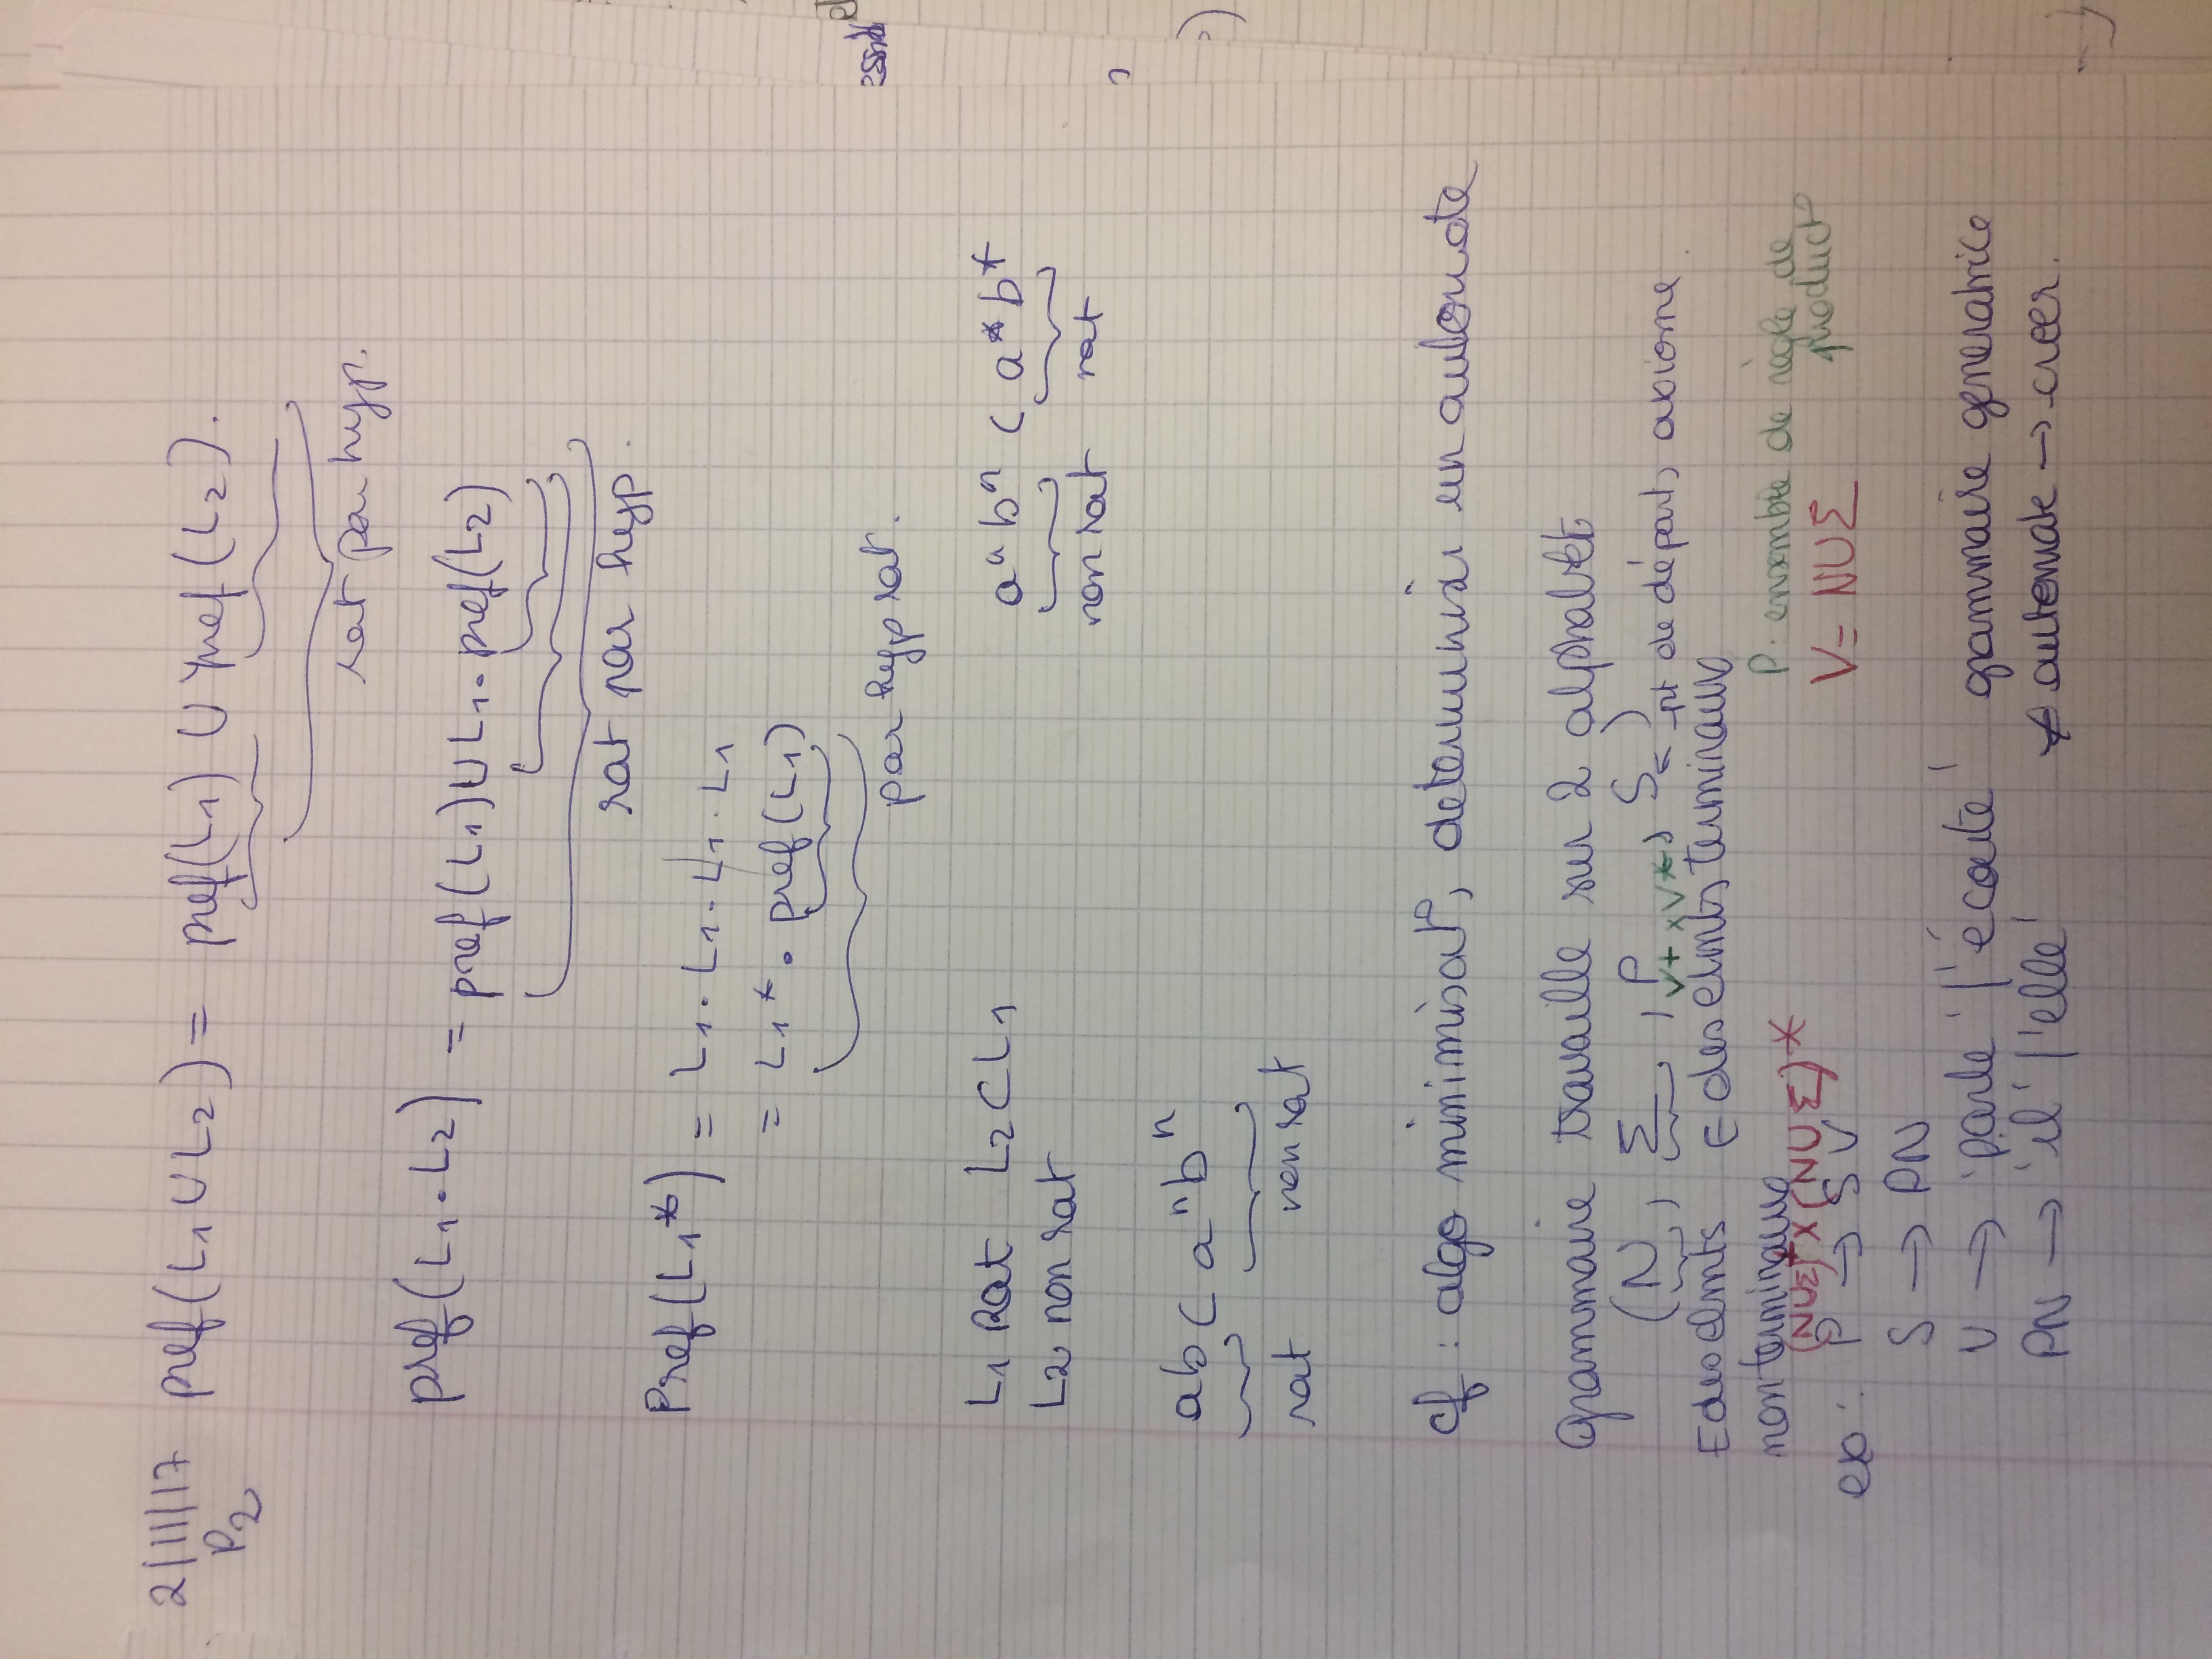 2/11/17 pref(L1 ∪ L2) = pref(L1) ∪ pref(L2).
P2
rat par hyp.
pref(L1 . L2) = pref(L1) ∪ L1 . pref(L2)
rat par hyp.
Pref(L1*) = L1 . L1 . L1 . L1
= L1* . pref(L1)
par hyp rat.
L1 Rat L2 ⊂ L1 aⁿbⁿ ⊂ a*b*
L2 non rat non rat rat
ab ⊂ aⁿbⁿ
rat non rat
cf : algo minimisat°, determiniser un automate
Grammaire travaille sur 2 alphabet
(N, Σ, P, S) ← pt de départ, axiome
V+ x V*
E des elmts E des elmts terminaux
non terminaux P. ensemble de règle de product°
(N∪Σ)+ x (N∪Σ)* V = N∪Σ
ex : P → S V
S → PN
V → 'parle' | 'écoute' grammaire generatrice
PN → 'il' | 'elle' ≠ automate → creer.